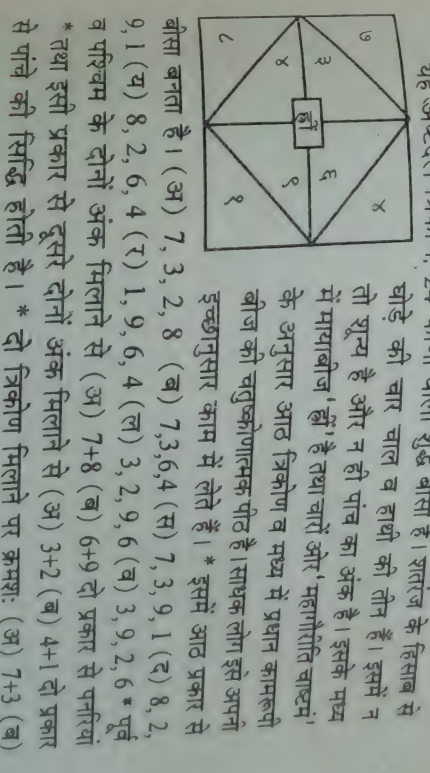 घोड़े की चार चाल व हाथी की तीन हैं। इसमें न
तो शून्य है और न ही पांच का अंक है। इसके मध्य
में मायाबीज 'ह्रीं' है तथा चारों ओर
के अनुसार आठ त्रिकोण व मध्य में प्रधान कामरूपी
बीज की चतुष्कोणात्मक पीठ है। साधक लोग इसे अपनी
इच्छानुसार काम में लेते हैं। * इसमें आठ प्रकार से
बीसा बनता है। (अ) 7, 3, 2, 8 (ब) 7,3,6,4 (स) 7, 3, 9, 1 (द) 8, 2,
9, 1 (य) 8, 2, 6, 4 (र) 1, 9, 6, 4 (ल) 3, 2, 9, 6 (व) 3, 9, 2, 6 * पूर्व
व पश्चिम के दोनों अंक मिलाने से (अ) 7+8 (ब) 6+9 दो प्रकार से पनरिया
* तथा इसी प्रकार से दूसरे दोनों अंक मिलाने से (अ) 3+2 (ब) 4+1 दो प्रकार
से पांचे की सिद्धि होती है। * दो त्रिकोण मिलाने पर क्रमश: (अ) 7+3 (ब)
७
३
६
ह्रीं
८